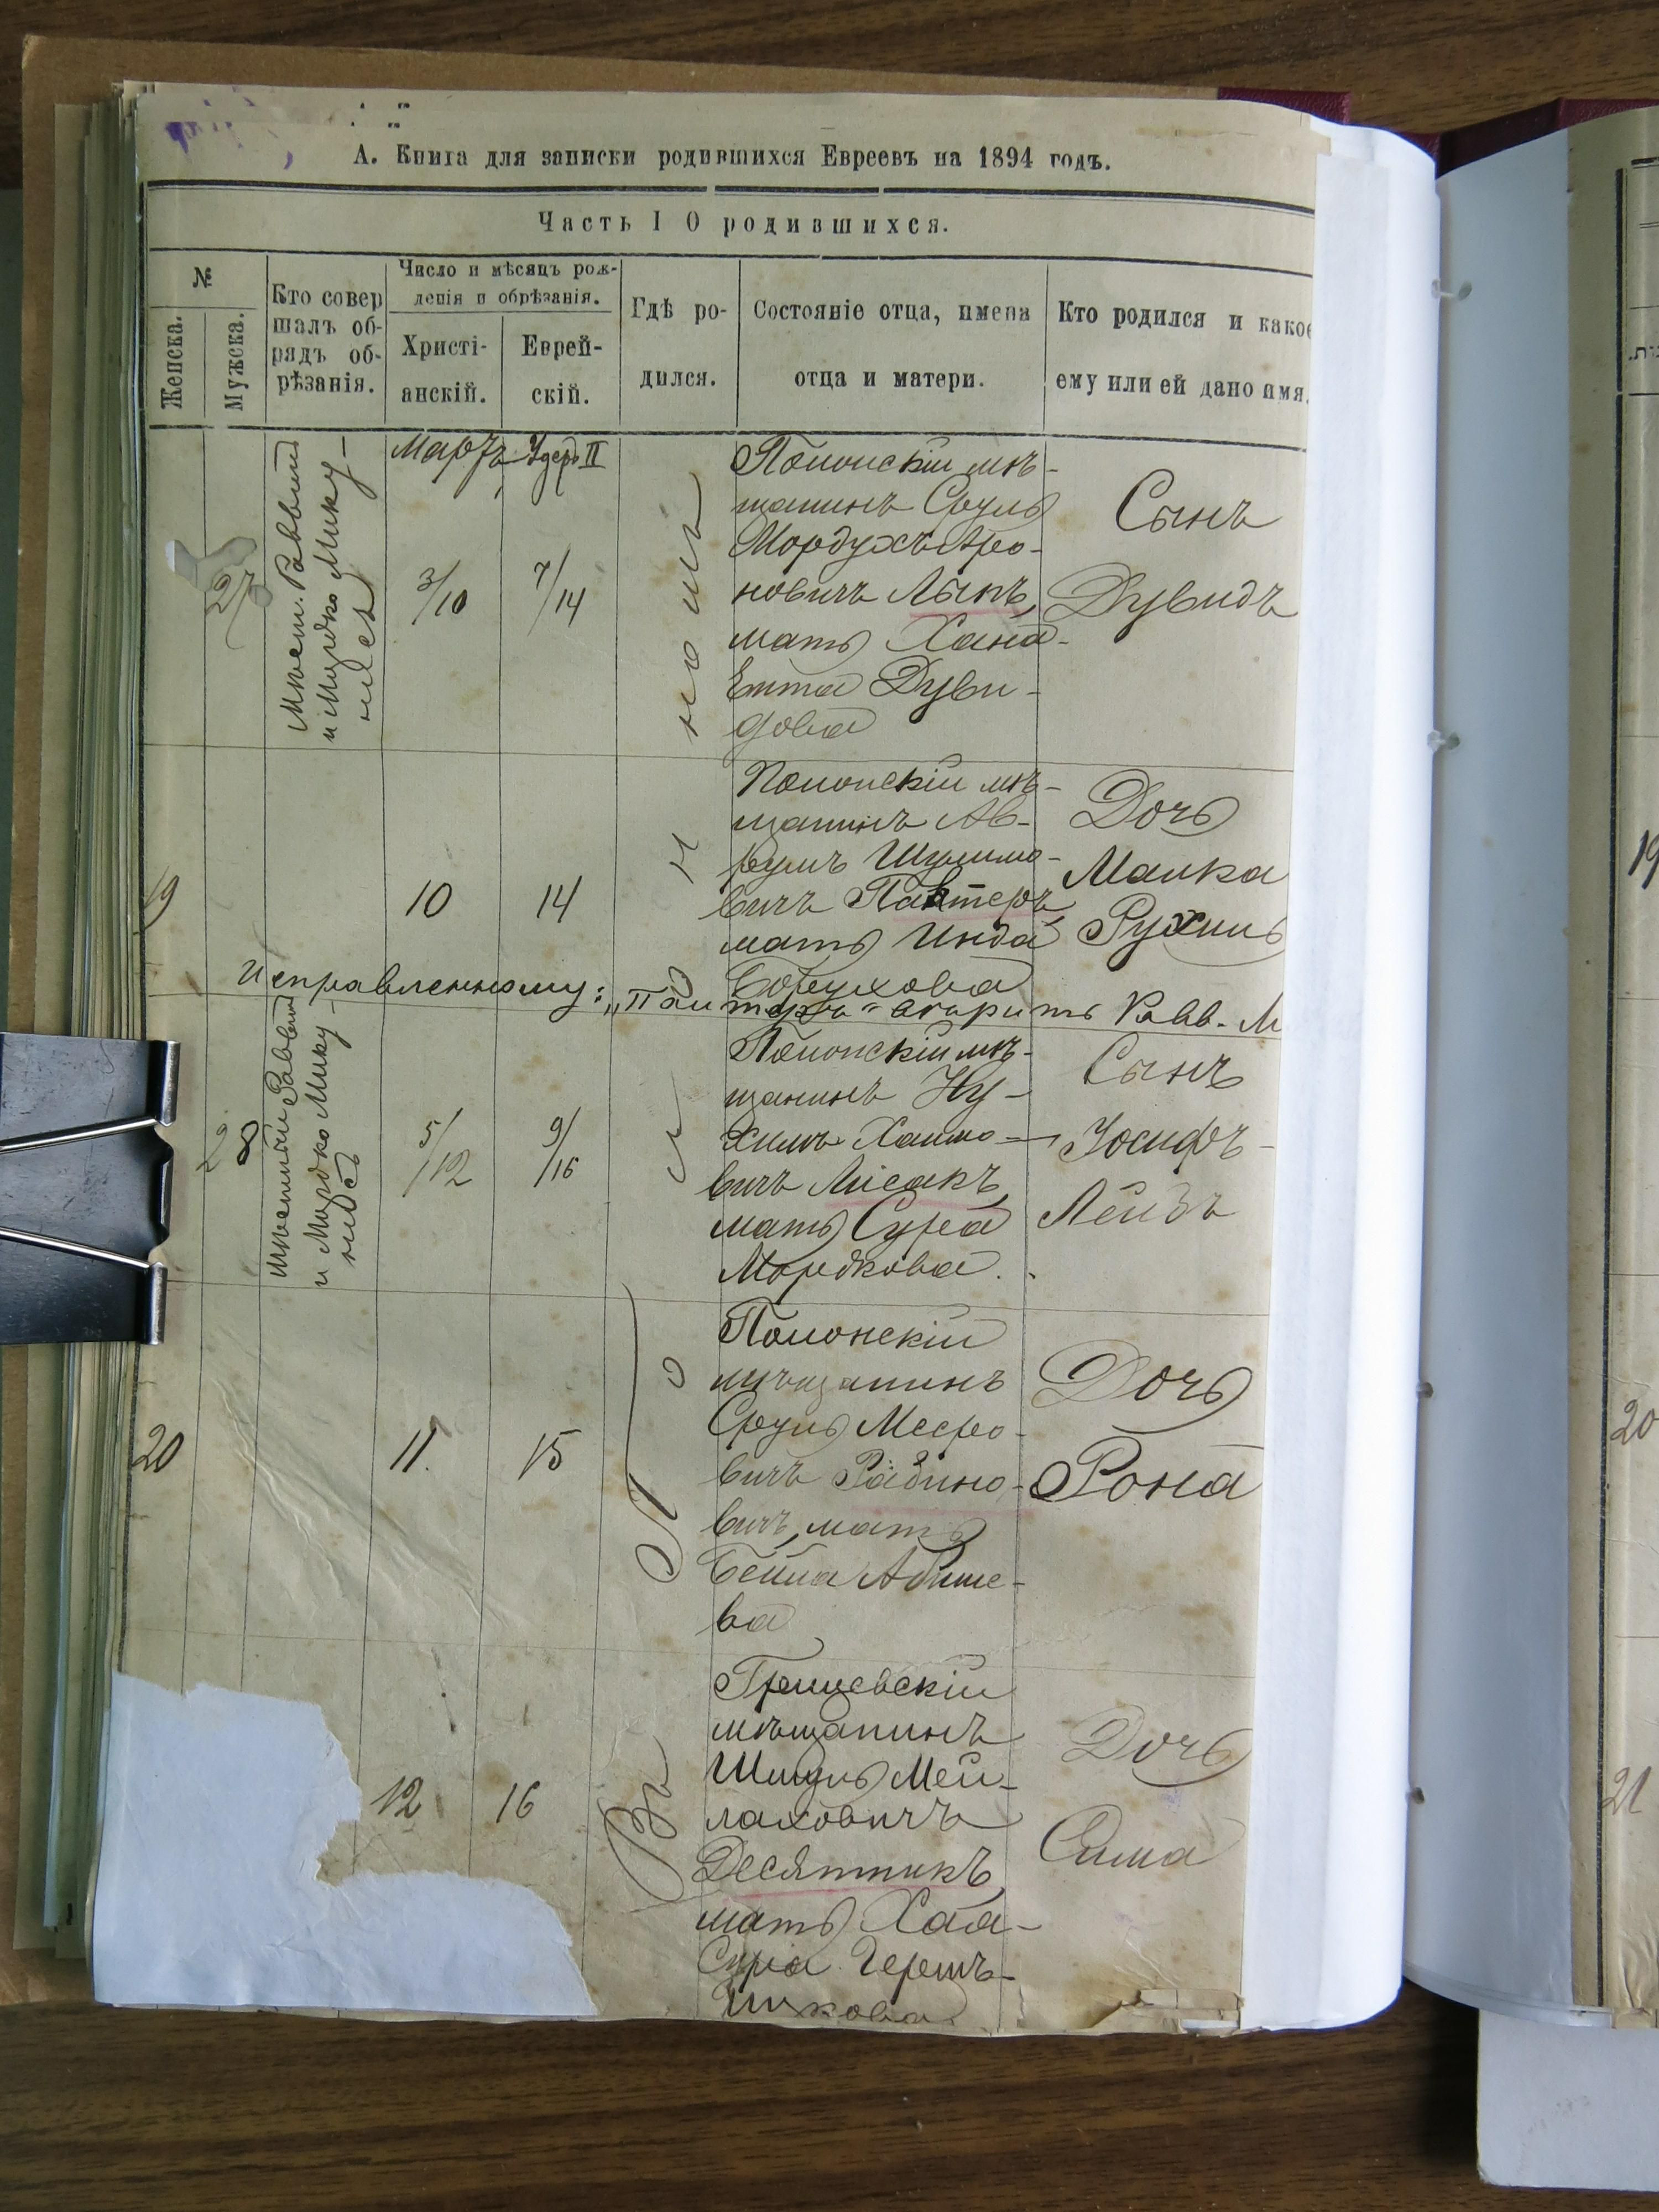 А. Книга для записки родившихся Евреевъ на 1894 годъ.
Часть I О родившихся.
№
Женска.
Мужска.
Кто совер
шалъ об-
рядъ об-
рѣзанія.
Число и мѣсяцъ рож-
денія и обрѣзанія.
Христі-
анскій.
Еврей-
скій.
Гдѣ ро-
дился.
Состояніе отца, имена
отца и матери.
Кто родился и какое
ему или ей дано имя.
27
Мѣст. Раввинъ
и Мордко Мику-
Мартъ
Адеръ II
3/10
7/14
Полонскій мѣ-
щанинъ Сруль
Мордухъ Аро-
новичъ
мать Хана-
Етта Дуви-
дова
Сынъ
Дувидъ
19
10
14
Полонскій мѣ-
щанинъ Ав-
румъ Шулимо-
вичъ Пантеръ
мать Инда
Борухова
Дочь
Малка
Рухиль
Исправленному: „Пантеръ" вѣрить Равв. М
28
Мѣстный Раввинъ
и Мордко Мику-
5/12
9/16
Полонскій мѣ-
щанинъ Ну-
химъ Хаимо-
вичъ Лисакъ,
мать Сура
Мордкова.
Сынъ
Іосифъ-
Лейбъ
20
11.
15
Полонскій
мѣщанинъ
Сруль Мееро-
вичъ Рабино-
вичъ, мать
Бейла Абише-
ва
Дочь
Рона
12
16
Грицевскій
мѣщанинъ
Шмуль Мей-
лаховичъ
Десятникъ,
мать Хая-
Сура Герш-
Ицкова.
Дочь
Сима
Въ
Полонномъ
19
20
21